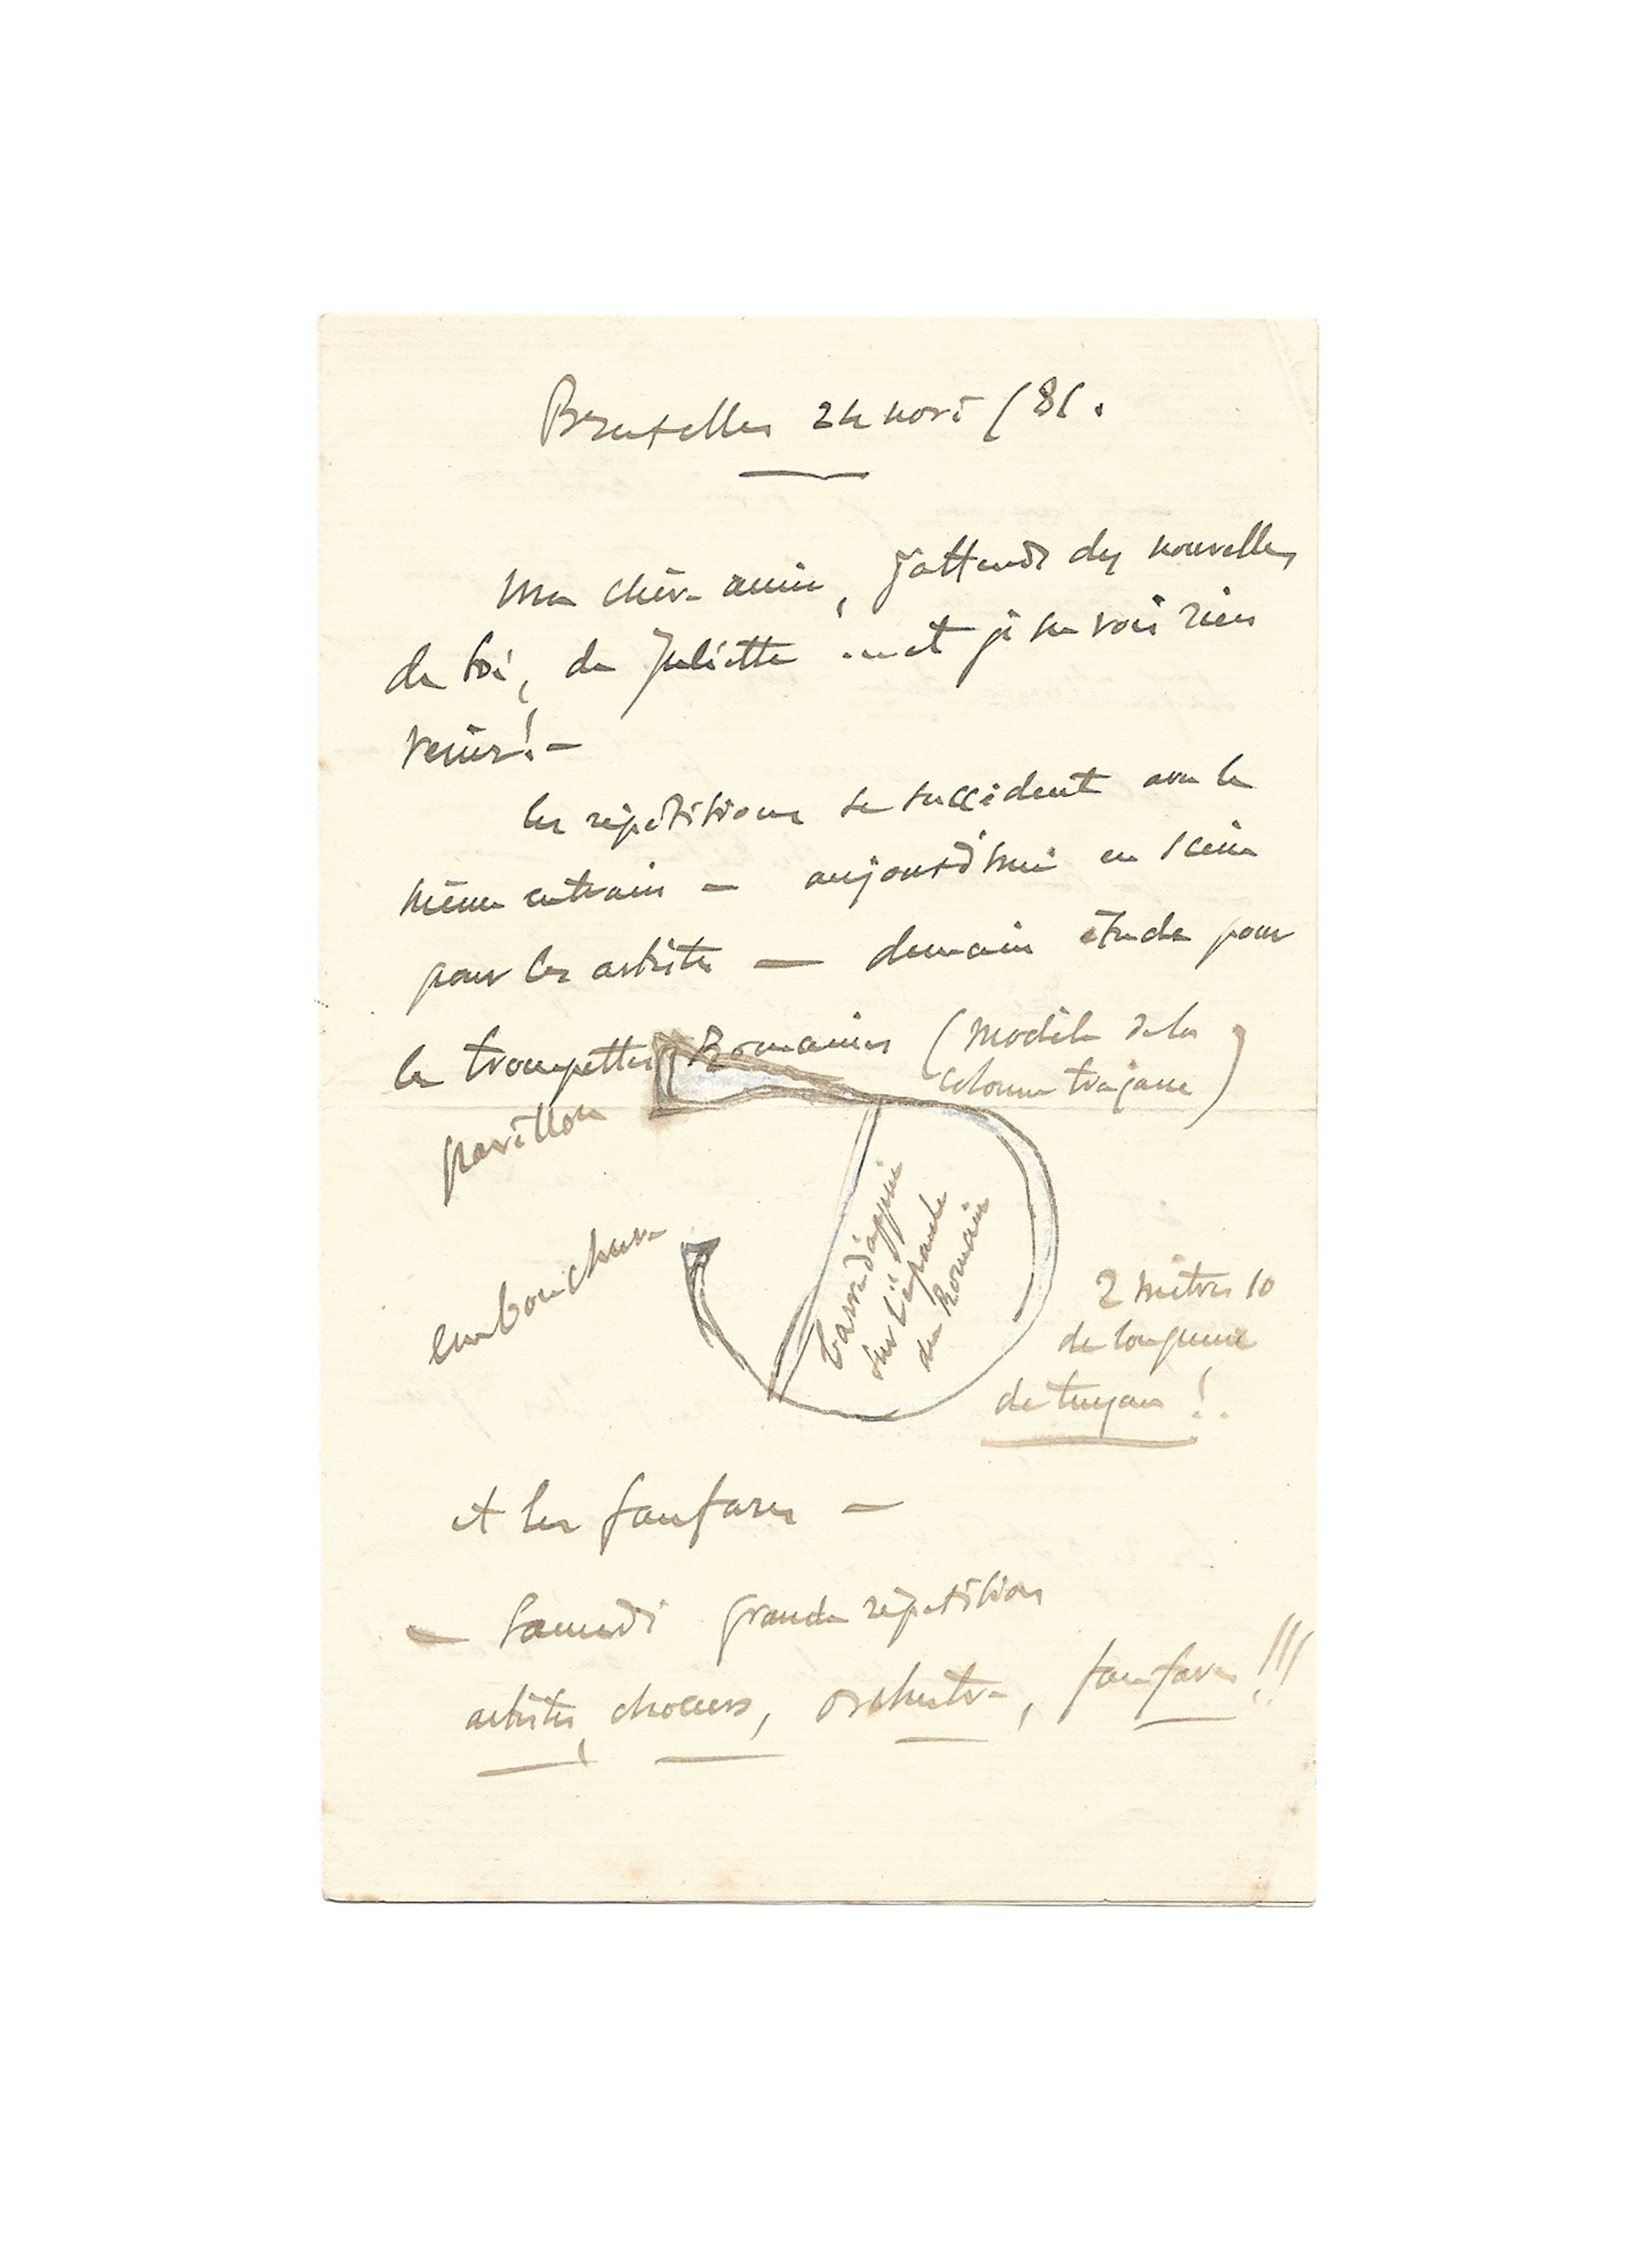 Bruxelles 24 nov: /81.
Ma chère amie, j'attends des nouvelles
de toi, de Juliette ... et je ne vois rien
venir! —
les répétitions se succèdent avec le
même entrain — aujourd'hui en scène
pour les artistes — demain étude pour
les trompettes Romaines (modèle de la
colonne trajane)
pavillon
embouchure
barre d'appui
sur l'épaule
du Romain
2 mètres 10
de longueur
de tuyau !.
et les fanfares —
— Samedi grande répétition
artistes, chœurs, orchestre, fanfares !!!